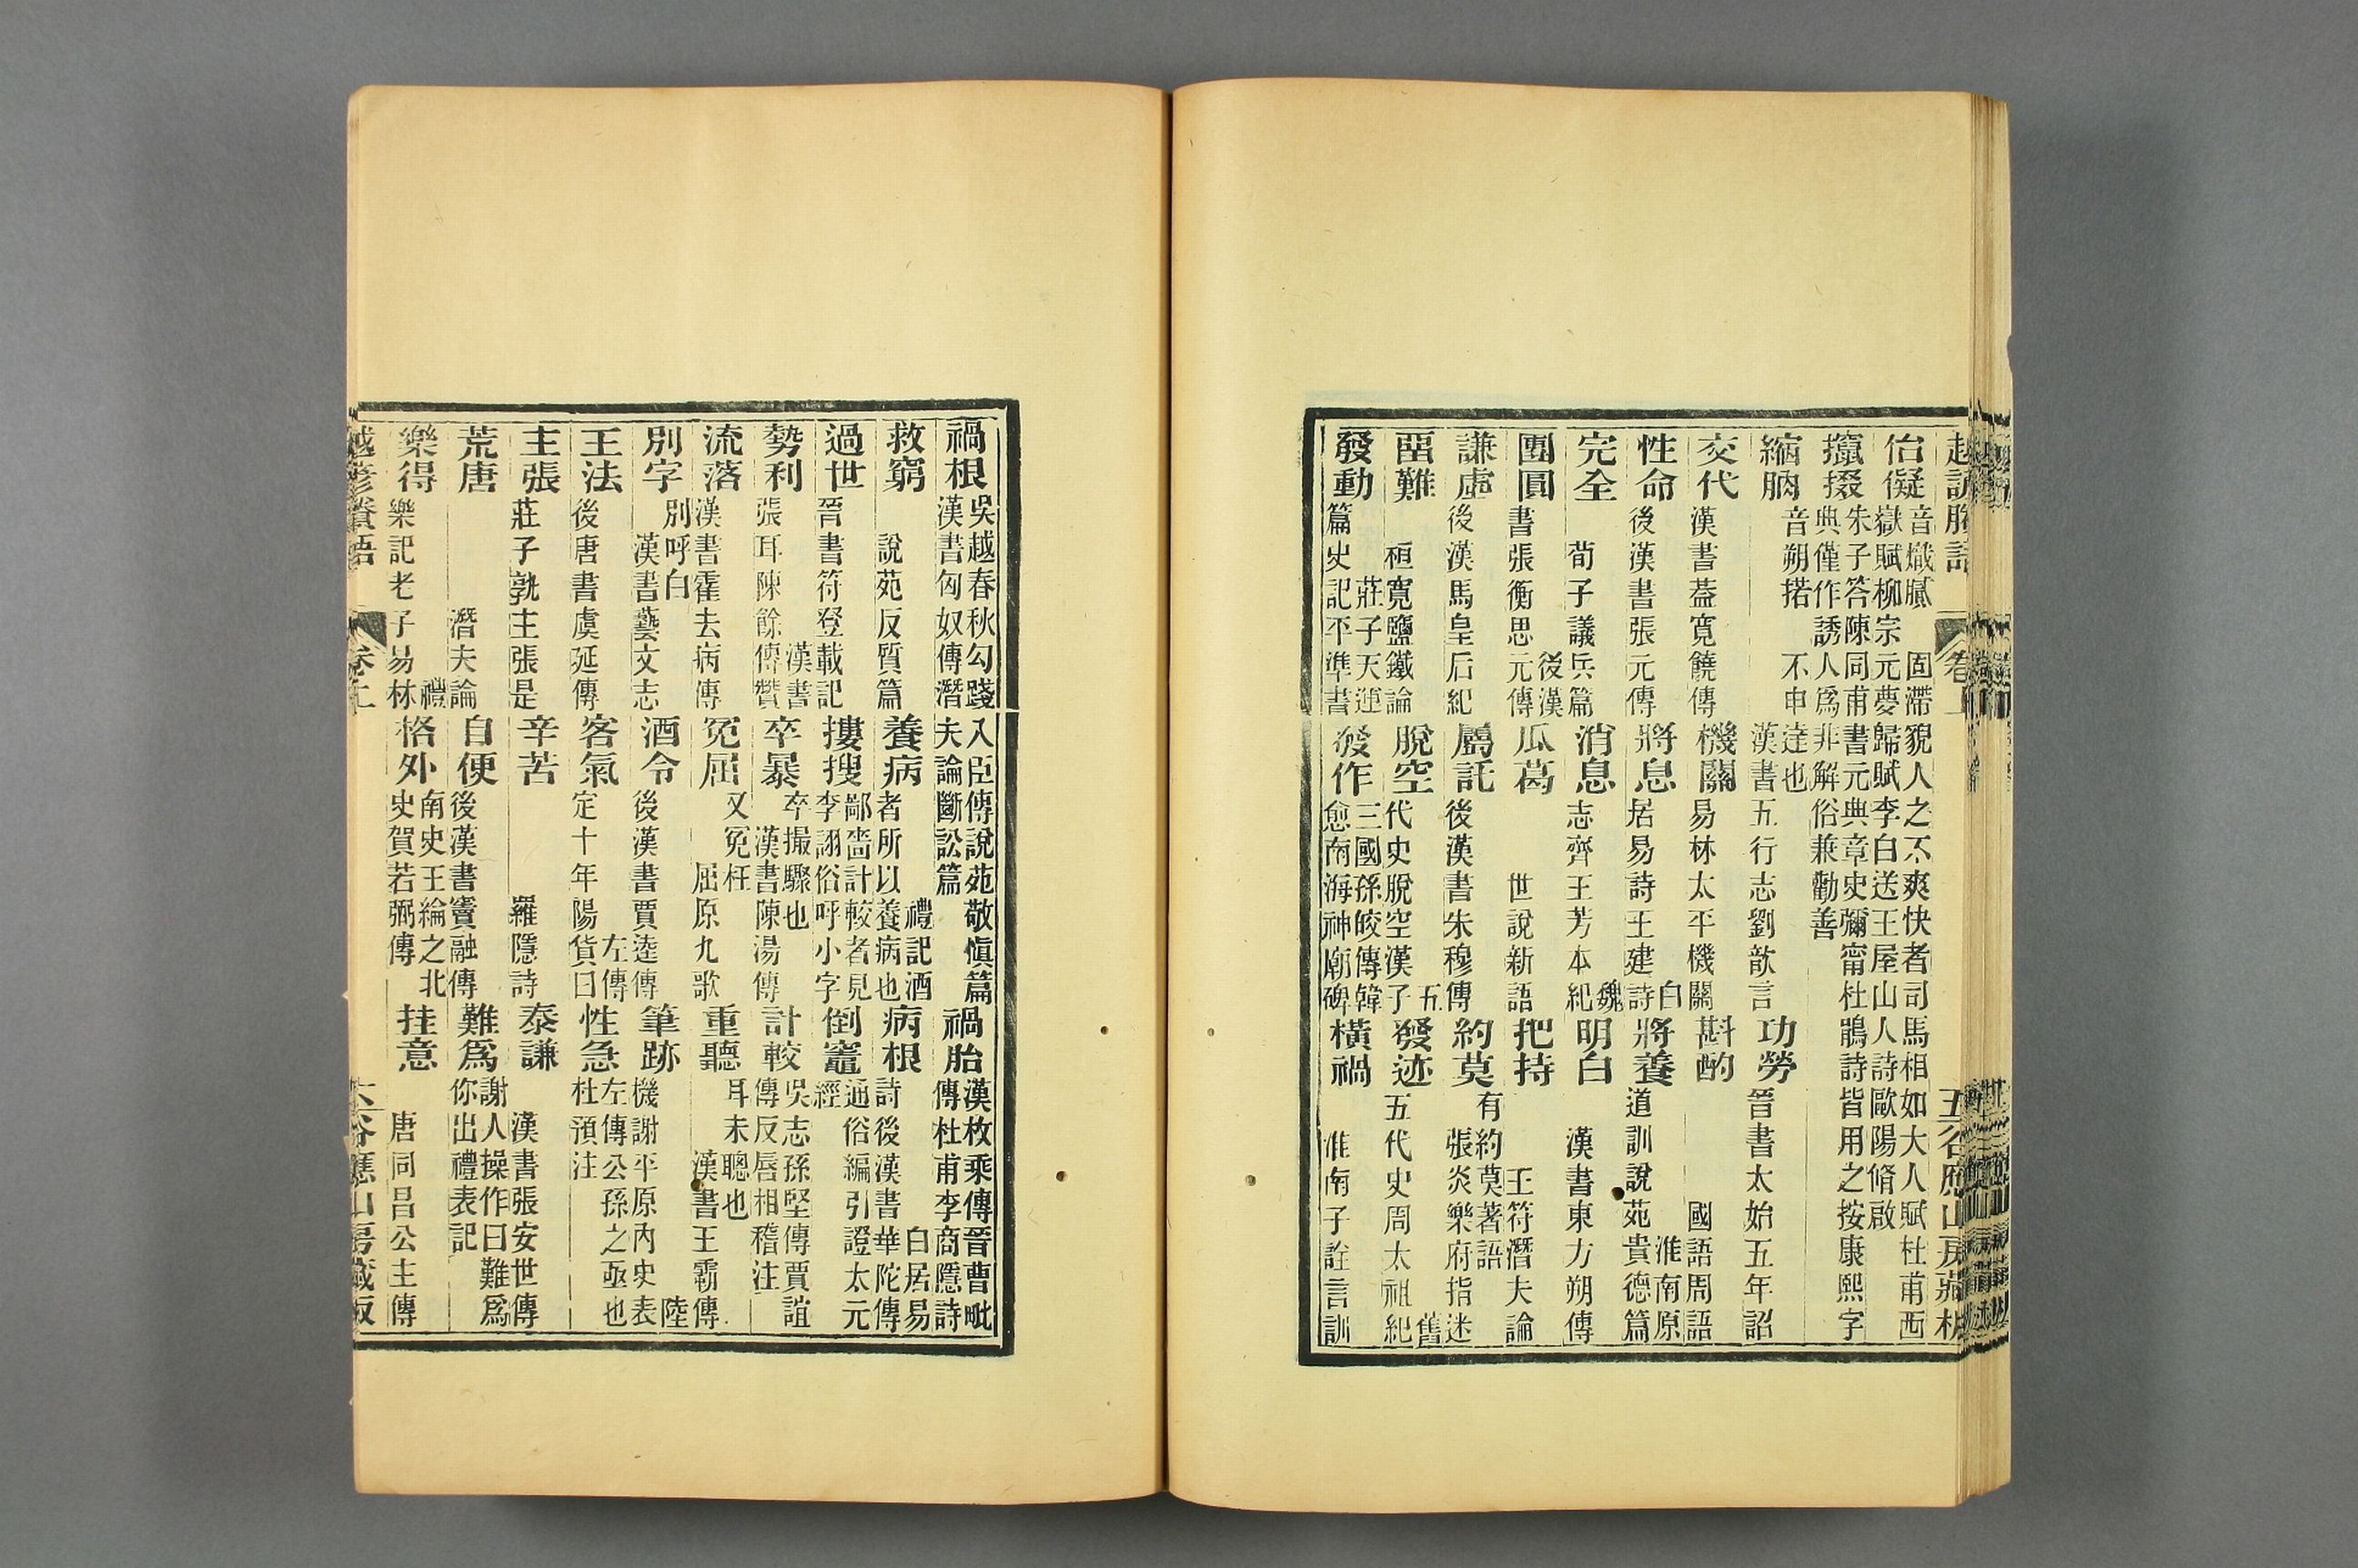 越諺賸語 卷上 五 谷應山房藏板
佁儗 音熾膩 固滯貌人之不爽快者司馬相如大人賦杜甫西嶽賦柳宗元夢歸賦李白送王屋山人詩歐陽脩啟
攛掇 朱子答陳同甫書元典章史彌甯杜鵑詩皆用之按康熙字典僅作誘人爲非解俗兼勸善
縮朒 音朔掿 不申達也漢書五行志劉歆言 功勞 晉書太始五年詔
交代 漢書蓋寬饒傳 機關 易林太平機關 斟酌 國語周語
性命 後漢書張元傳 將息 白居易詩王建詩 將養 淮南原道訓說苑貴德篇
完全 荀子議兵篇 消息 魏志齊王芳本紀 明白 漢書東方朔傳
團圓 後漢書張衡思元傳 瓜葛 世說新語 把持 王符潛夫論
謙虛 後漢馬皇后紀 屬託 後漢書朱穆傳 約莫 有約莫著語張炎樂府指迷
畱難 桓寬鹽鐵論 脫空 五代史脫空漢子 發迹 舊五代史周太祖紀
發動 莊子天運篇史記平準書 發作 三國孫皎傳韓愈南海神廟碑 橫禍 淮南子詮言訓
禍根 吳越春秋勾踐入臣傳說苑敬愼篇漢書匈奴傳潛夫論斷訟篇 禍胎 漢枚乘傳晉曹毗傳杜甫李商隱詩
救窮 說苑反質篇 養病 禮記酒者所以養病也 病根 白居易詩後漢書華陀傳
過世 晉書符登載記 摟搜 鄙嗇計較者見李詡俗呼小字 倒竈 通俗編引證太元經
勢利 漢書張耳陳餘傳贊 卒暴 卒撮驟也漢書陳湯傳 計較 吳志孫堅傳賈誼傳反唇相稽注
流落 漢書霍去病傳 冤屈 又冤枉屈原九歌 重聽 耳未聰也漢書王霸傳
別字 別呼白漢書藝文志 酒令 後漢書賈逵傳 筆跡 陸機謝平原內史表
王法 後唐書虞延傳 客氣 左傳定十年陽貨曰 性急 左傳公孫之亟也杜預注
主張 莊子孰主張是 辛苦 羅隱詩 泰謙 漢書張安世傳
荒唐 潛夫論 自便 後漢書竇融傳 難爲 謝人操作曰難爲你出禮表記
樂得 禮樂記老子易林 格外 南史王綸之北史賀若弼傳 挂意 唐同昌公主傳
越諺賸語 卷上 六 谷應山房藏板